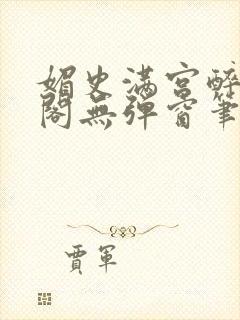 媚史满宫醉
阁无弹窗笔
贾军